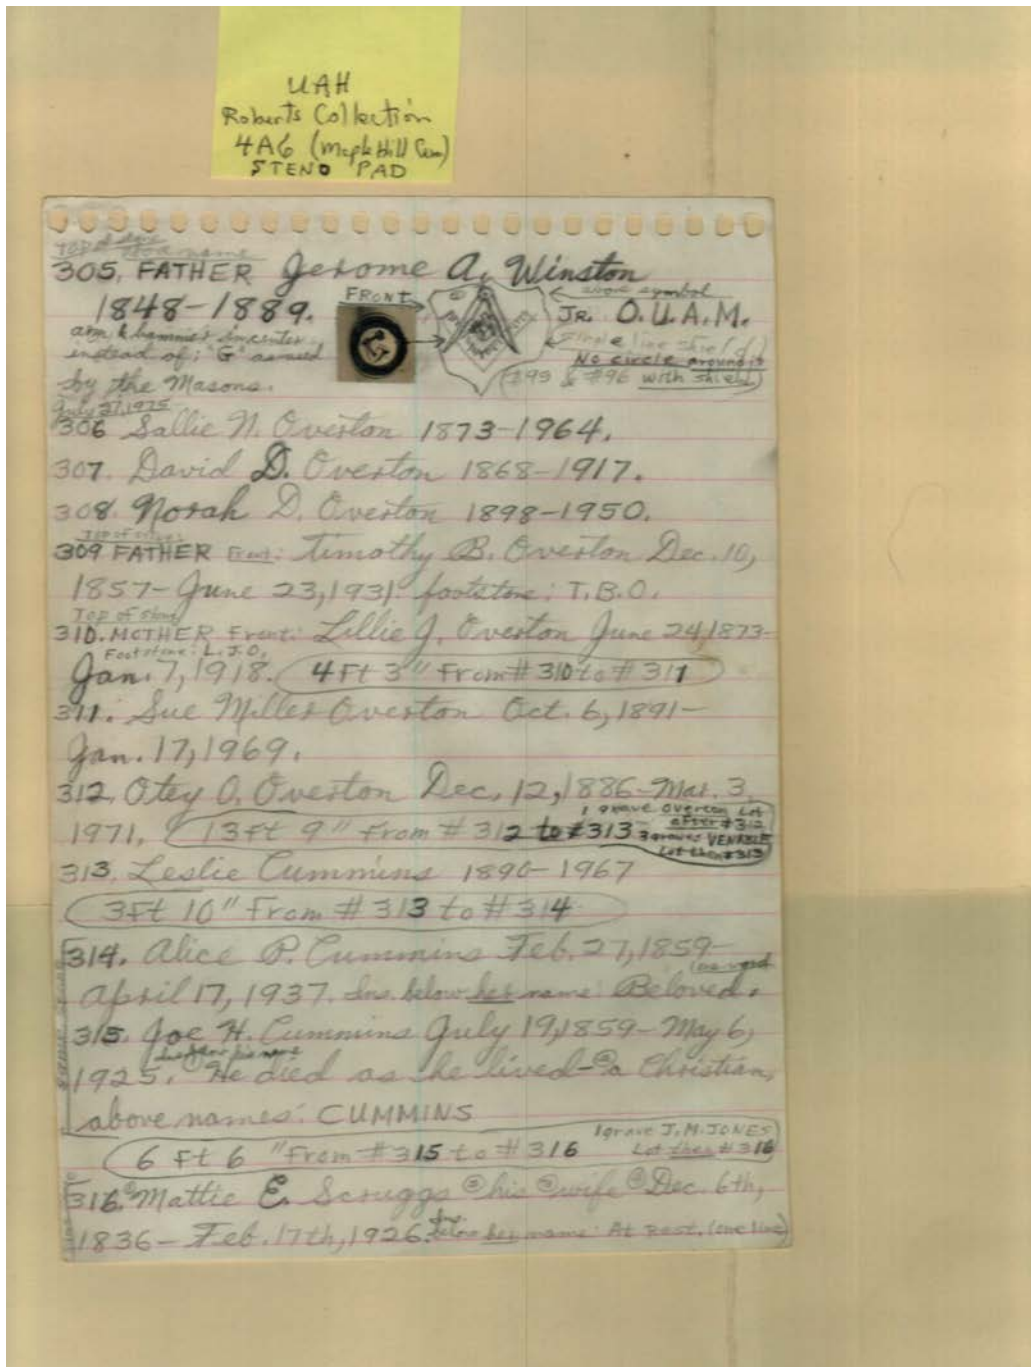 UAH
Roberts Collection
4A6 (Maple Hill Cem)
STENO PAD
TOP of stone
above name
305. FATHER Jerome A. Winston
1848-1889.
FRONT
above symbol
JR. O.U.A.M.
arm & hammer in center
instead of: "G" as used
by the Masons.
Single line shield
No circle around it
(#93 & #96 with shield)
July 27, 1975
306 Sallie N. Overton 1873-1964.
307. David D. Overton 1868-1917.
308. Norah D. Overton 1898-1950.
Top of stone:
309 FATHER Front: Timothy B. Overton Dec. 10,
1857- June 23, 1931. footstone: T.B.O.
Top of stone
310. MOTHER Front: Lillie J. Overton June 24, 1873-
Footstone: L.J.O.
Jan. 7, 1918. 4 Ft 3" From # 310 to # 311
311. Sue Miller Overton Oct. 6, 1891-
Jan. 17, 1969.
312. Otey O. Overton Dec. 12, 1886-Mar. 3,
1971. 13 ft 9" From # 312 to #313
1 grave Overton Lot
after #312
3 graves VENABLE
Lot then #313
313. Leslie Cummins 1890-1967
3 Ft 10" From # 313 to # 314
314. Alice P. Cummins Feb. 27, 1859-
April 17, 1937. Ins. below her name: Beloved.
(one word
315. Joe H. Cummins July 19, 1859- May 6,
Ins below his name
1925. He died as he lived-@a Christian,
above names: CUMMINS
same stone
6 Ft 6" From # 315 to # 316
1 grave J.M. JONES
Lot then # 316
316. Mattie E. Scruggs @his @wife @Dec. 6th,
1836- Feb. 17th, 1926. Ins. below her name: At Rest. (one line)